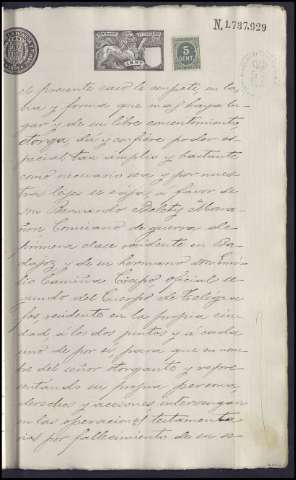 N.1.737.929
5 CENT
el presente caso le compete en la
via y forma que mas haya lu-
gar y de su libre consentimiento
otorga, dá y confiere poder es-
pecial tan amplio y bastante
como necesario sea y por nues-
tras leyes se exija, a favor de
Don Bernardo
Comisario de guerra de
primera clase residente en Ba-
dajoz y de su hermano Don Emi-
lio Crespo oficial se-
gundo del Cuerpo de Telegra-
fos residente en la propia ciu-
dad á los dos juntos y a cada
uno de por si, para que en nom-
bre del señor otorgante y repre-
sentando su propia persona,
derechos y acciones intervengan
en las operaciones testamenta-
rias por fallecimiento de su se-